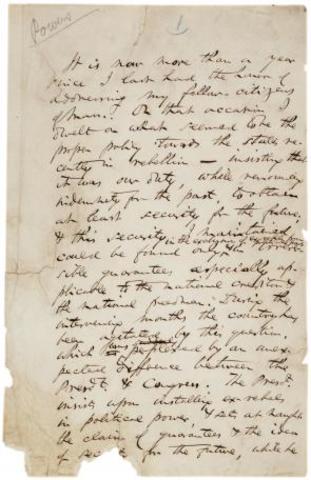 Powers
1
It is now more than a year
since I last had the honor of
addressing my fellow-citizens
of Mass.ts On that occasion I
dwelt on what seemed to be the
proper policy towards the states re-
cently in rebellion — insisting that
it was our duty, while renouncing
indemnity for the past, to obtain
at least security for the future,
& this security, I maintained,
could be found only in the exclusion of ex-rebels &
guarantees especially ap-
plicable to the national creditor &
the national freedman. During the
intervening months the country has
been agitated by this question,
which was perplexed by an unex-
pected difference between the
Presdt. & Congress. The Presdt.
insists upon installing ex-rebels
in political power, & sets at naught
the claim of guarantees & the idea
of security for the future, while he